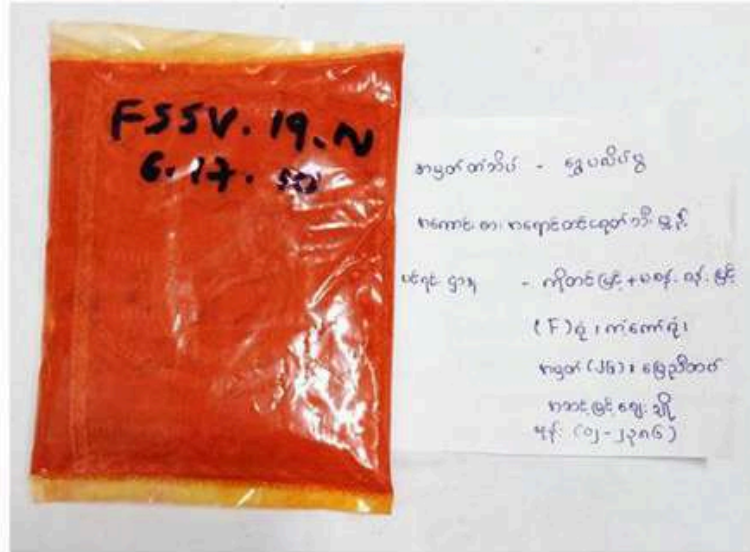 FSSV. 19. N
6. 17.
အမှတ်တံဆိပ် - ရွှေပလိပ်ပွ
အကောင်းစား အရောင်တင်ငရုတ်သီးမှုန့်
ပင်ရင်းဌာန - ကိုတင်မြင့် + မခန်းခန်းမြင့်
(F) ရုံ၊ ကံကော်ရုံ၊
အမှတ် (၂၆)၊ မြေညီထပ်
အောင်မြင်ဈေး
ဖုန်း (၀၂-၂၃၈၆)